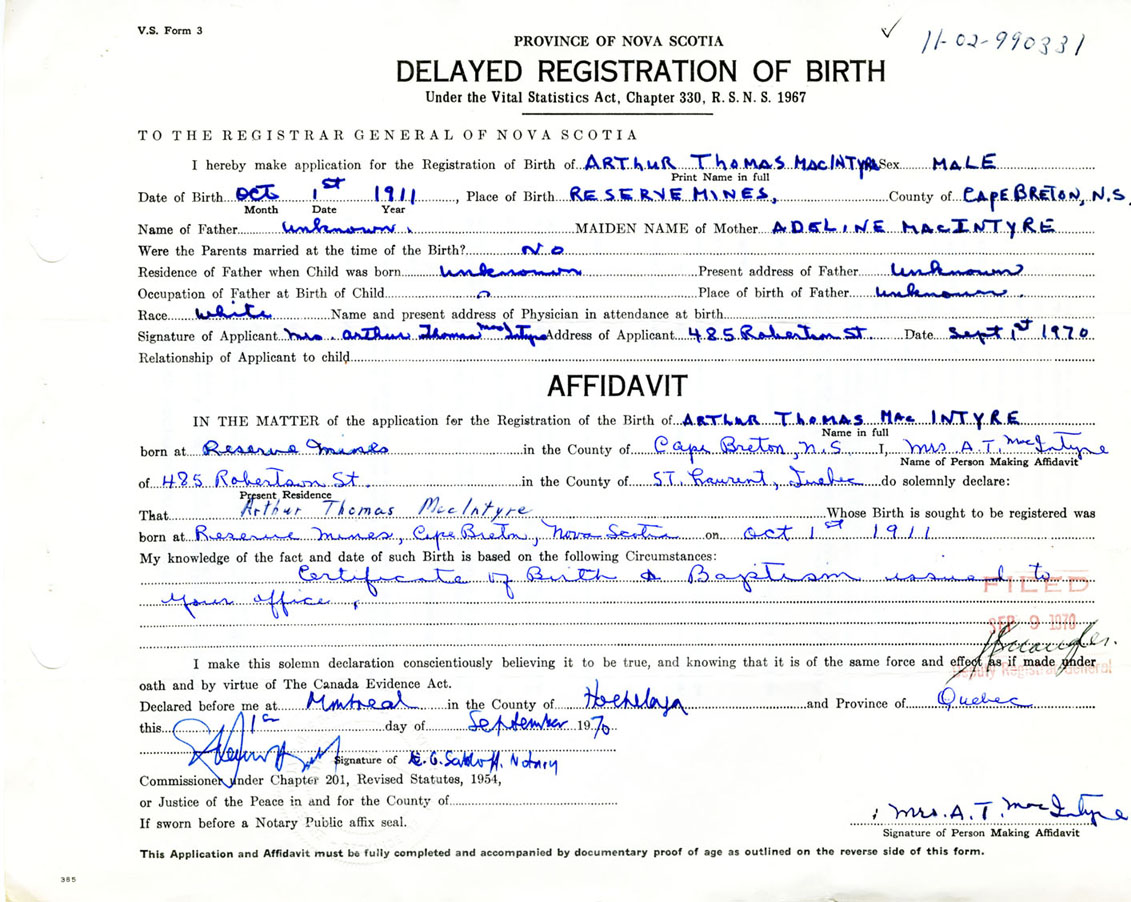 V.S. Form 3
11-02-990331
PROVINCE OF NOVA SCOTIA
DELAYED REGISTRATION OF BIRTH
Under the Vital Statistics Act, Chapter 330, R. S. N. S. 1967
TO THE REGISTRAR GENERAL OF NOVA SCOTIA
I hereby make application for the Registration of Birth of ARTHUR THOMAS MACINTYRE Sex MALE
Print Name in full
Date of Birth Oct 1st 1911, Place of Birth RESERVE MINES, County of CAPE BRETON, N.S.
Month Date Year
Name of Father unknown. MAIDEN NAME of Mother ADELINE MACINTYRE
Were the Parents married at the time of the Birth? NO
Residence of Father when Child was born unknown Present address of Father unknown
Occupation of Father at Birth of Child Place of birth of Father unknown.
Race white Name and present address of Physician in attendance at birth
Signature of Applicant Mrs. Arthur Thomas MacIntyre Address of Applicant 485 Robertson St. Date Sept 1st 1970
Relationship of Applicant to child
AFFIDAVIT
IN THE MATTER of the application for the Registration of the Birth of ARTHUR THOMAS MAC INTYRE
Name in full
born at Reserve Mines in the County of Cape Breton, N.S. I, Mrs A.T. MacIntyre
Name of Person Making Affidavit
of 485 Robertson St. in the County of ST. Laurent, Quebec do solemnly declare:
Present Residence
That Arthur Thomas MacIntyre Whose Birth is sought to be registered was
born at Reserve Mines, Cape Breton, Nova Scotia on Oct 1st 1911
My knowledge of the fact and date of such Birth is based on the following Circumstances:
Certificate of Birth & Baptism issued to
your office.
FILED
SEP 9 1970
Deputy Registrar General
I make this solemn declaration conscientiously believing it to be true, and knowing that it is of the same force and effect as if made under
oath and by virtue of The Canada Evidence Act.
Declared before me at Montreal in the County of Hochelaga and Province of Quebec
this 1st day of September 1970
Signature of Notary
Commissioner under Chapter 201, Revised Statutes, 1954,
or Justice of the Peace in and for the County of
If sworn before a Notary Public affix seal.
Mrs. A. T. MacIntyre
Signature of Person Making Affidavit
This Application and Affidavit must be fully completed and accompanied by documentary proof of age as outlined on the reverse side of this form.
385